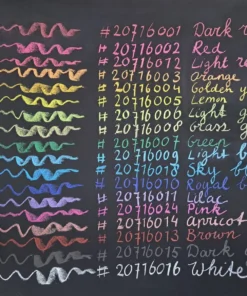 #20716001 Dark
#20716002 Red
#20716012 Light
#20716003 Orange
#20716004 Golden
#20716005 Lemon
#20716006 Light
#20716008 Glass
#20716007 Green
#20716009 Light
#20716018 Sky
#20716010 Royal
#20716011 Lilac
#20716024 Pink
#20716014 Apricot
#20716013 Brown
#20716015 Dark
#20716016 White